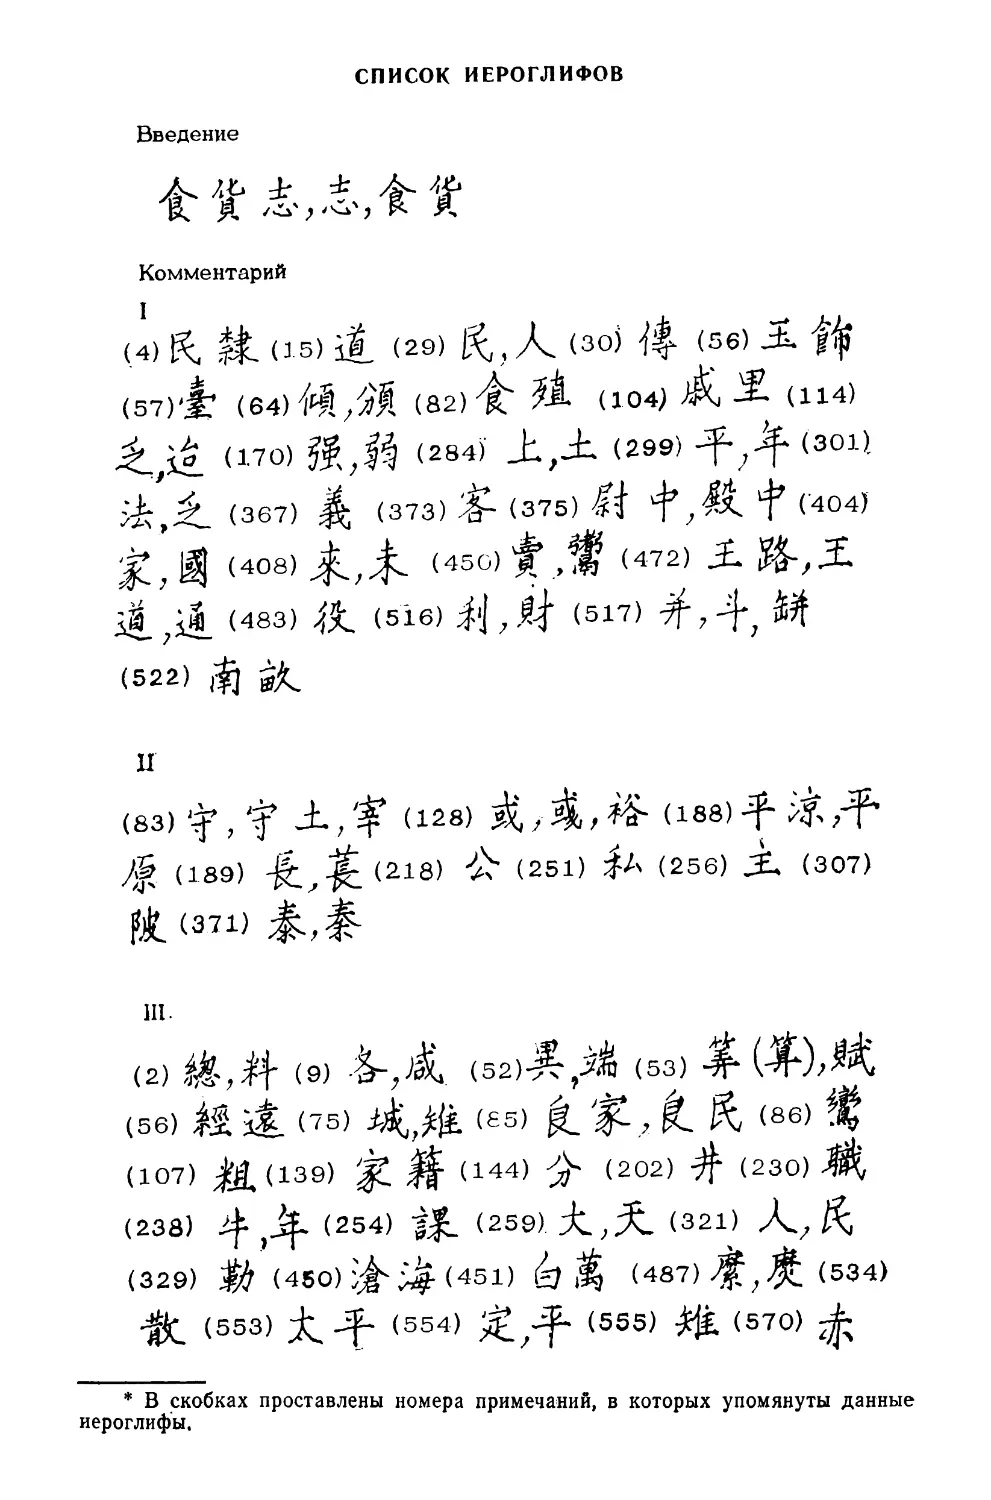 СПИСОК ИЕРОГЛИФОВ
Введение
食貨志,志,食貨
Комментарий
I
(4) 民隸 (15) 道 (29) 民,人 (30) 傳 (56) 玉飾
(57) 臺 (64) 傾,頒 (82) 食殖 (104) 戚里 (114)
乏,迨 (170) 强,弱 (284) 上,土 (299) 平,年 (301)
法,乏 (367) 義 (373) 客 (375) 尉中,殿中 (404)
家,國 (408) 來,未 (450) 賣,鬻 (472) 王路,王
道,通 (483) 役 (516) 利,財 (517) 并,斗,缾
(522) 南畝
II
(83) 守,守土,宰 (128) 或,彧,裕 (188) 平涼,平
原 (189) 長,萇 (218) 公 (251) 私 (256) 主 (307)
陂 (371) 泰,秦
III.
(2) 總,料 (9) 各,咸 (52) 異,端 (53) 筭(算),賦
(56) 經遠 (75) 城,雉 (85) 良家,良民 (86) 鸞
(107) 粗 (139) 家籍 (144) 分 (202) 井 (230) 職
(238) 牛,年 (254) 課 (259) 大,天 (321) 人,民
(329) 勤 (450) 滄海 (451) 白萬 (487) 縻,爂 (534)
散 (553) 太平 (554) 定,平 (555) 雉 (570) 赤
* В скобках проставлены номера примечаний, в которых упомянуты данные
иероглифы.